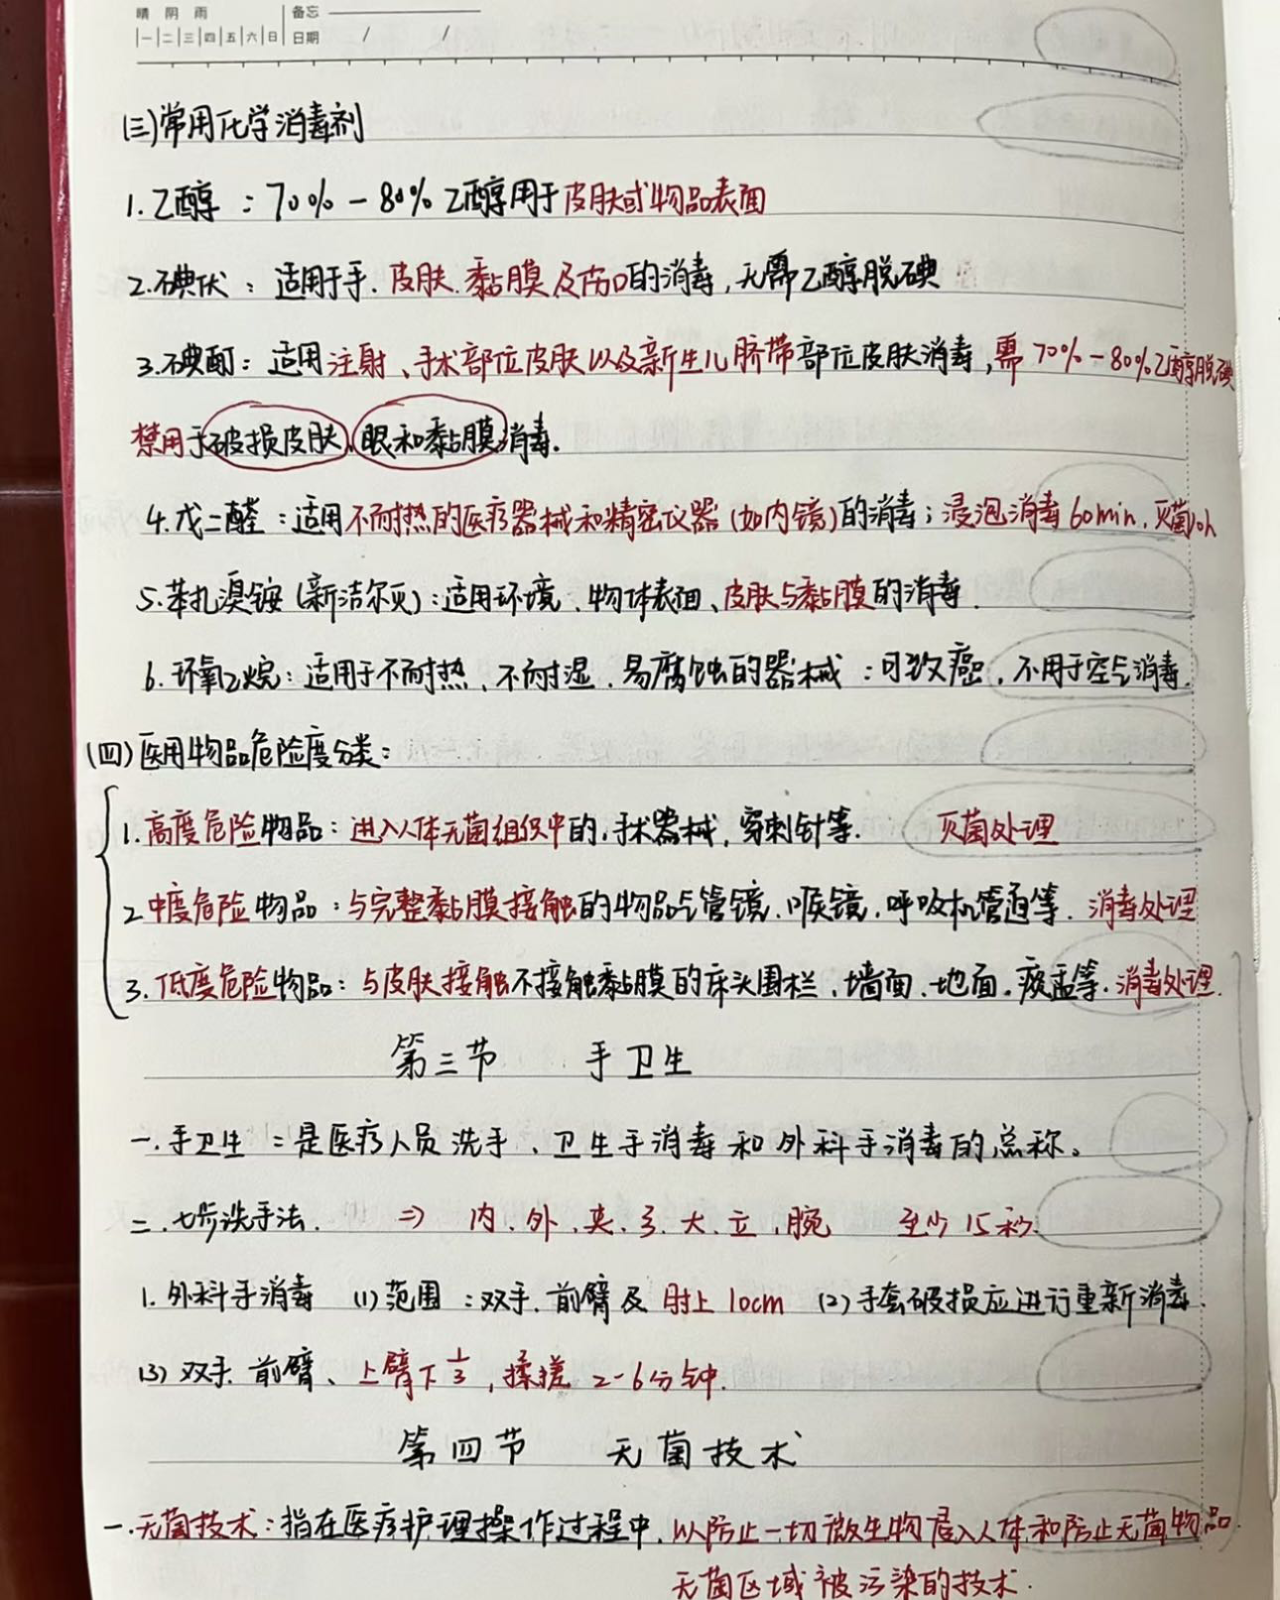 晴 阴 雨 备忘
一 二 三 四 五 六 日 日期 / /
(三)常用化学消毒剂
1. 乙醇：70%-80%乙醇用于皮肤或物品表面
2. 碘伏：适用于手、皮肤、黏膜及伤口的消毒，无需乙醇脱碘
3. 碘酊：适用注射、手术部位皮肤以及新生儿脐带部位皮肤消毒，需70%-80%乙醇脱碘
禁用于破损皮肤、眼和黏膜消毒.
4. 戊二醛：适用不耐热的医疗器械和精密仪器(如内镜)的消毒；浸泡消毒60min，灭菌10h
5. 苯扎溴铵(新洁尔灭)：适用环境、物体表面、皮肤与黏膜的消毒.
6. 环氧乙烷：适用于不耐热、不耐湿、易腐蚀的器械：可致癌，不用于空气消毒.
(四)医用物品危险度分类：
1. 高度危险物品：进入人体无菌组织中的，手术器械，穿刺针等. 灭菌处理
2 中度危险物品：与完整黏膜接触的物品气管镜、喉镜、呼吸机管道等. 消毒处理
3. 低度危险物品：与皮肤接触不接触黏膜的床头围栏、墙面、地面、痰盂等. 消毒处理.
第三节 手卫生
一.手卫生：是医疗人员洗手、卫生手消毒和外科手消毒的总称。
二.七步洗手法. ⇒ 内、外、夹、弓、大、立、腕 至少15秒.
1. 外科手消毒 (1)范围：双手、前臂及肘上10cm (2)手套破损应进行重新消毒.
(3)双手、前臂、上臂下1/3，揉搓2-6分钟.
第四节 无菌技术
一.无菌技术：指在医疗护理操作过程中，以防止一切微生物侵入人体和防止无菌物品.
无菌区域被污染的技术.